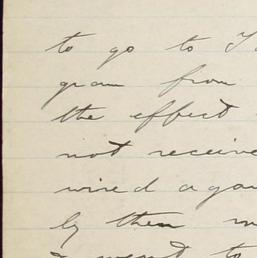 to go to
gram from
the effect
not receive
wired again
by them
I went to